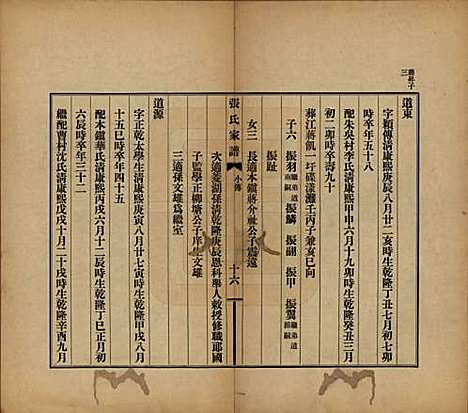 鵬飛子
三
道東
字穎傳清康熙庚辰八月廿二亥時生乾隆丁丑七月初七卯
時卒年五十八
配朱吳村李氏清康熙甲申六月十九卯時生乾隆癸丑三月
初二卯時卒壽九十
葬江蔣飢一圩碟漾灘壬丙子兼亥巳向
子六 振羽繼弟道嗣 振鱗 振翮 振甲 振翼繼弟道源嗣
振趾
女三 長適本鎮蔣分社公子震遠
張氏家譜 小傳 十六
次適菱湖孫清乾隆庚辰恩科舉人敕授修職郎國
子監學正柳塘公子庠生文雄
三適孫文雄為繼室
道源
字正乾太學生清康熙庚寅八月廿七寅時生乾隆甲戌八月
十五巳時卒年四十五
配本鎮華氏清康熙丙戌六月十二辰時生乾隆丁巳正月初
六辰時卒年三十二
繼配曹村沈氏清康熙戊戌十月二十戌時生乾隆辛酉九月